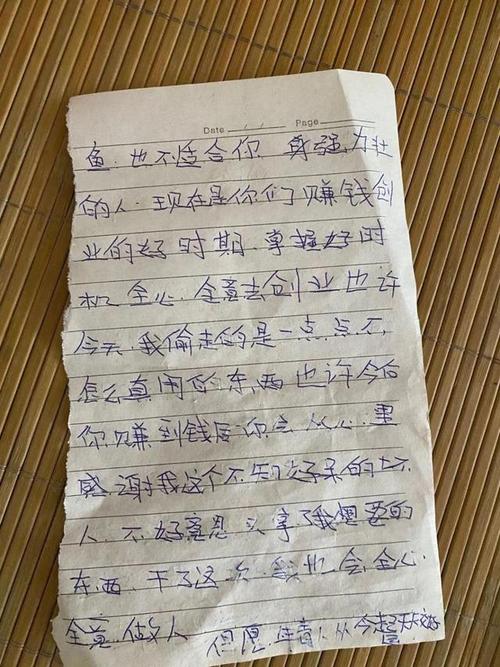 Date / / Page
鱼.也不适合你 身强力壮
的人.现在是你们赚钱创
业的好时期.掌握好时
机 全心.全意去创业也许
今天 我偷走的是一点点不.
怎么真用的东西也许今后
你赚到钱后你会从心里
感谢我这个不知好呆的坏
人.不好意思 拿了我想要的
东西.干了这次 我也会全心.
全意.做人 但愿.年青人从今